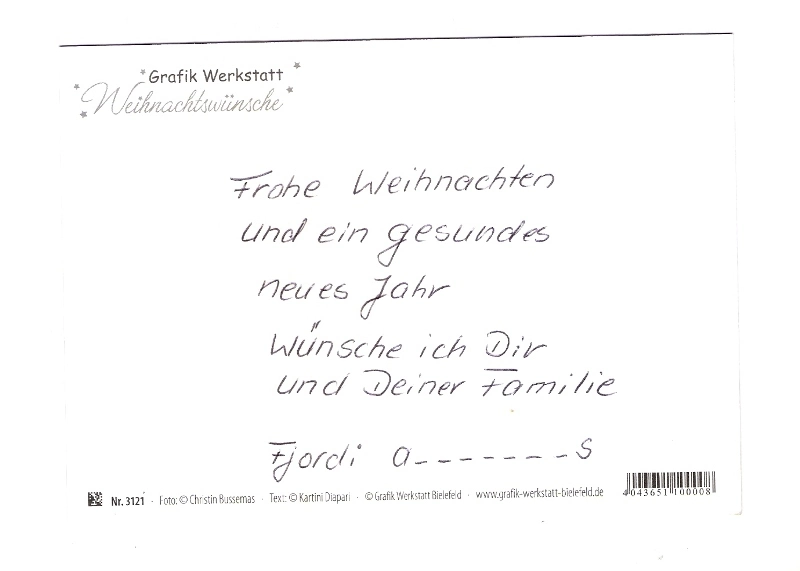 Grafik Werkstatt
Weihnachtswünsche
Frohe Weihnachten
und ein gesundes
neues Jahr
wünsche ich Dir
und Deiner Familie
Fjordi a-------s
Nr. 3121 · Foto: © Christin Bussemas · Text: © Kartini Diapari · © Grafik Werkstatt Bielefeld · www.grafik-werkstatt-bielefeld.de
4 043651 100008